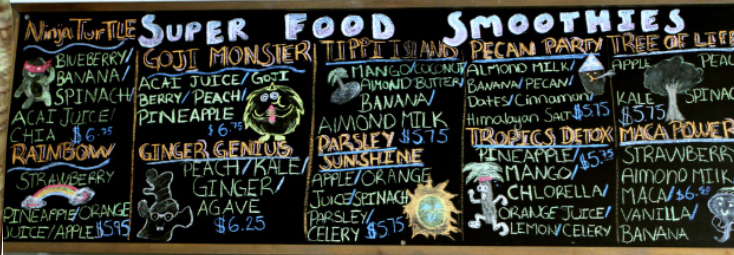 SUPER FOOD SMOOTHIES
Ninja TurTLE
BLUEBERRY/
BANANA/
SPINACH/
ACAI JUICE/
CHIA $6.75
RAINBOW
STRAWBERRY
PINEAPPLE/ORANGE
JUICE/APPLE $5.95
GOJI MONSTER
ACAI JUICE/GOJI
BERRY/PEACH/
PINEAPPLE
$6.75
GINGER GENIUS
PEACH/KALE/
GINGER/
AGAVE
$6.25
TIPPI ISLAND
MANGO/COCONUT/
ALMOND BUTTER/
BANANA/
AlMOND MILK
$5.75
PARSLEY
SUNSHINE
APPLE/ORANGE
JUICE/SPINACH
PARSLEY/
CELERY $5.75
PECAN PARTY
ALMOND MILK/
BANANA/PECAN/
Dates/Cinnamun/
Himalayan Salt $5.75
TROPICS DETOX
PINEAPPLE/ $5.75
MANGO/
CHLORELLA/
ORANGE JUICE/
LEMON/CELERY
TREE OF LIFE
APPLE PEAC
KALE SPINAC
$5.75
MACA POWER
STRAWBERR
AlMOND MILK
MACA/ $6.50
VANILLA/
BANANA